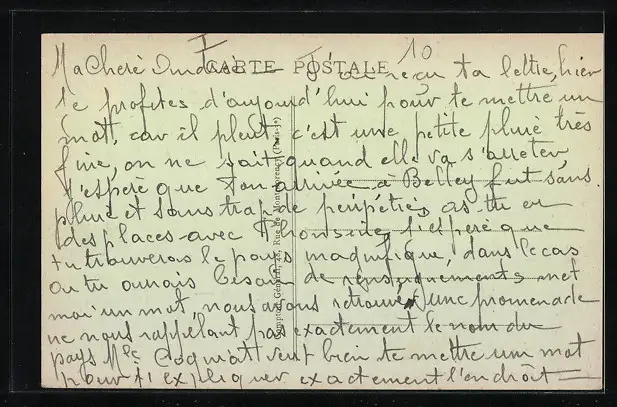 I 10
CARTE POSTALE
Ma Cherè J'ai reçu ta lettre, hier
je profites d'aujourd'hui pour te mettre un
mot, car il pleut, c'est une petite pluie très
fine, on ne sait quand elle va s'arreter,
j'esperè que ton arrivée à Belley fut sans
pluie et sans trop de peripéties, as tu eu
des places avec j'esperè que
tu trouveras le pays magnifique, dans le cas
ou tu aurais besoin de renseignements met
moi un mot, nous avons retrouvés une promenade
ne nous rappelant pas exactement le nom du
pays Mle veut bien te mettre un mot
pour t'expliquer exactement l'endroit
Comptoir Général, 28, Rue de Montmorency (Paris-3e)